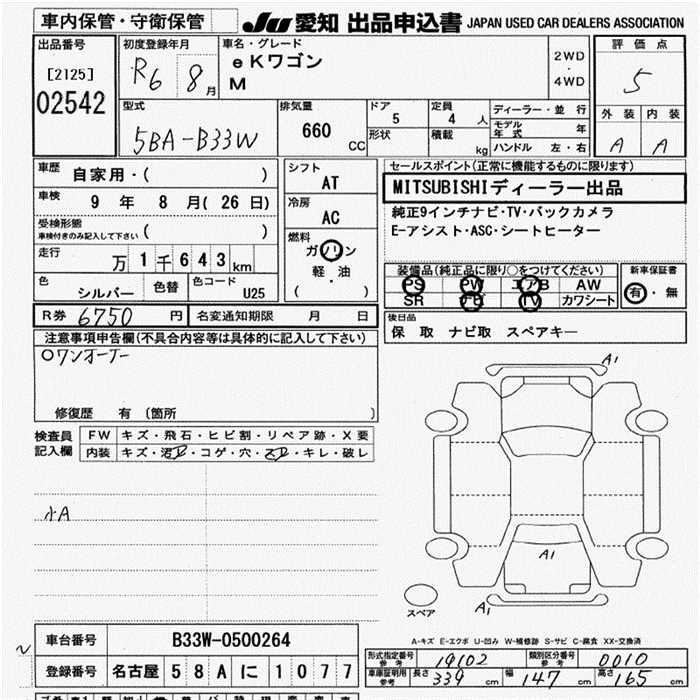 車内保管・守衛保管
JU 愛知 出品申込書 JAPAN USED CAR DEALERS ASSOCIATION
出品番号
[2125]
02542
初度登録年月
R6 8月
車名・グレード
eKワゴン
M
2WD
・
4WD
評価点
5
外装 内装
A A
型式
5BA-B33W
排気量
660 CC
ドア
5
形状
定員
4 人
積載
kg
ディーラー・並行
モデル年式 年
ハンドル 左・右
車歴
自家用・( )
車検
9 年 8 月( 26 日)
受検形態
車検付きのみ記入して下さい ( )
走行
万 1 千 6 4 3 km
色
シルバー
色替
色コード
U25
シフト
AT
冷房
AC
燃料
ガソリン
軽・油
( )
セールスポイント(正常に機能するものに限ります)
MITSUBISHIディーラー出品
純正9インチナビ・TV・バックカメラ
E-アシスト・ASC・シートヒーター
装備品(純正品に限り○をつけてください)
PS PW エアB AW
SR ナビ TV カワシート
新車保証書
有・無
R券 6750 円
名変通知期限 月 日
後日品
保 取 ナビ取 スペアキー
注意事項申告欄(不具合内容等は具体的に記入して下さい)
○ワンオーナー
修復歴 有 〔箇所 〕
検査員
記入欄
FW キズ・飛石・ヒビ割・リペア跡・X要
内装 キズ・汚レ・コゲ・穴・スレ・キレ・破レ
小A
A1
A1
A1
スペア
A-キズ E-エクボ U-凹み W-補修跡 S-サビ C-腐食 XX-交換済
車台番号
B33W-0500264
登録番号
名古屋 5 8 A に 1 0 7 7
形式指定番号
参考
19102
類別区分番号
参考
0010
車庫証明用
参考
長さ 339 cm
幅 147 cm
高さ 165 cm